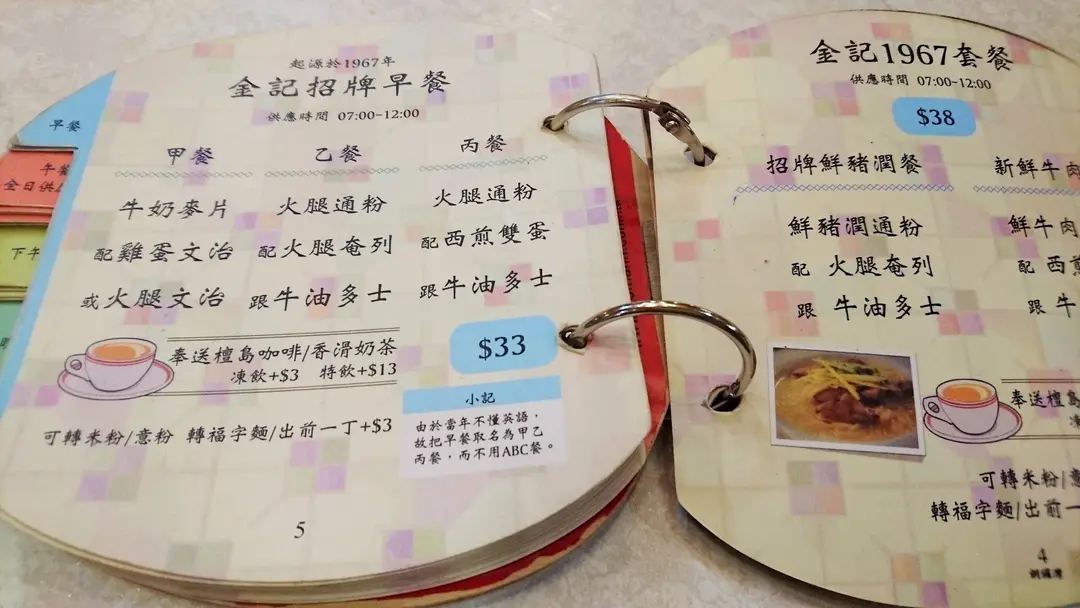 早餐
午餐
全日供
下午
起源於1967年
金記招牌早餐
供應時間 07:00-12:00
甲餐 乙餐 丙餐
牛奶麥片 火腿通粉 火腿通粉
配雞蛋文治 配火腿奄列 配西煎雙蛋
或火腿文治 跟牛油多士 跟牛油多士
$33
奉送檀島咖啡/香滑奶茶
凍飲+$3 特飲+$13
可轉米粉/意粉 轉福字麵/出前一丁+$3
小記
由於當年不懂英語，
故把早餐取名為甲乙
丙餐，而不用ABC餐。
5
金記1967套餐
供應時間 07:00-12:00
$38
招牌鮮豬潤餐 新鮮牛肉
鮮豬潤通粉 鮮牛肉
配 火腿奄列 配 西煎
跟 牛油多士 跟 牛
奉送檀島
可轉米粉/意
轉福字麵/出前一
4
銅鑼灣